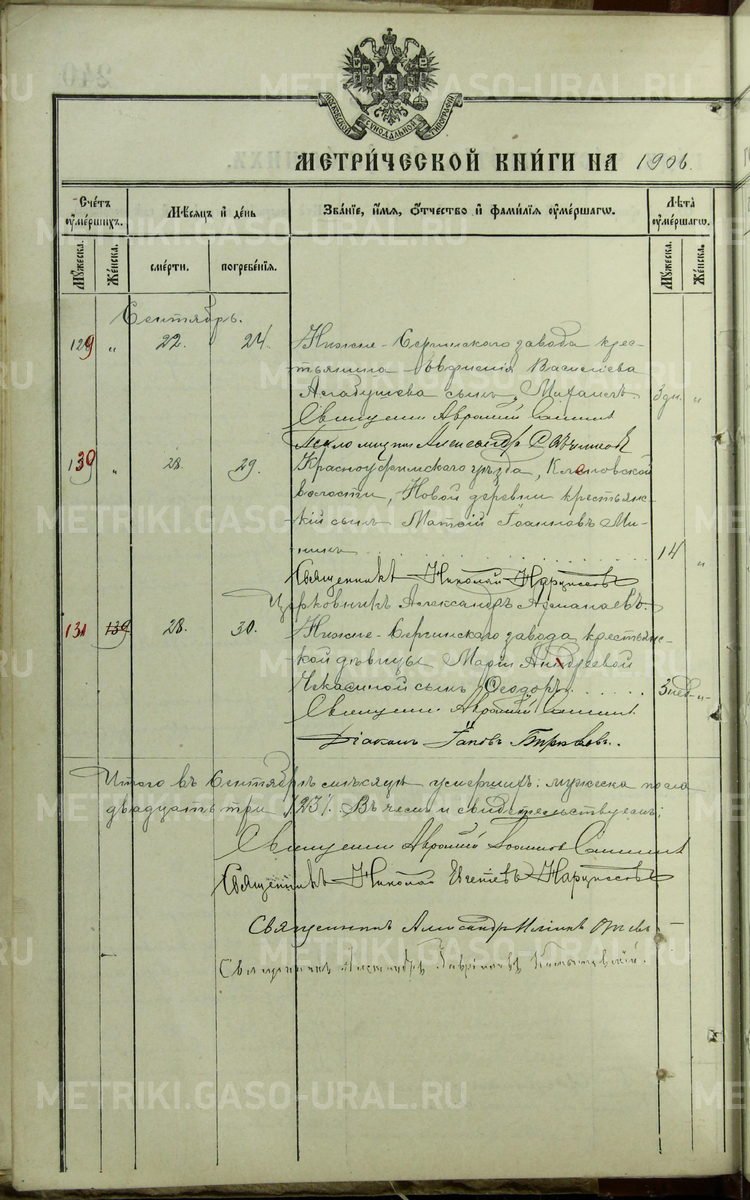 МОСКОВСКОЙ СѴНОДАЛЬНОЙ ТИПОГРАФІИ
МЕТРИ́ЧЕСКОЙ КНИ́ГИ НА 1906.
Счétъ ᲂу҆мéршихъ. Мѣ́сяцъ и҆ дéнь Звáнїе, и҆́мя, ѻ҆́тчество и҆ фами́лїя ᲂу҆мéршагѡ. Лѣ́та ᲂу҆мéршагѡ.
Мꙋ́жеска. Жéнска. смéрти. погребéнїя. Мꙋ́жеска. Жéнска.
Сентябрь.
129 " 22. 24. Нижне-Сергинскаго завода крес-
тьянина Евфисія Василіева
сынъ, Михаилъ 3 дн. "
Священникъ Авраамій
Псаломщикъ Александръ
130 " 28. 29. Красноуфимскаго уѣзда, Кленовской
волости, Новой деревни крестьянс-
кій сынъ Матѳій Іоанновъ Ми-
нинъ 14 "
Священникъ Николай Нарциссовъ
Церковникъ Александръ
131 139 28. 30. Нижне-Сергинскаго завода крестьянс-
кой дѣвицы Маріи Андреевой
Чекасиной сынъ Ѳеодоръ 3 нед. "
Священникъ Авраамій
Діаконъ Іаковъ Бирюковъ.
Итого въ Сентябрѣ мѣсяцѣ умершихъ: мужеска пола
двадцать три /23/. Въ чемъ и свидетельствуемъ:
Священникъ Авраамій Іоанновъ
Священникъ Николай Евгеніевъ Нарциссовъ
Священникъ Александръ
Священникъ Александръ Гавріиловъ
METRIKI.GASO-URAL.RU